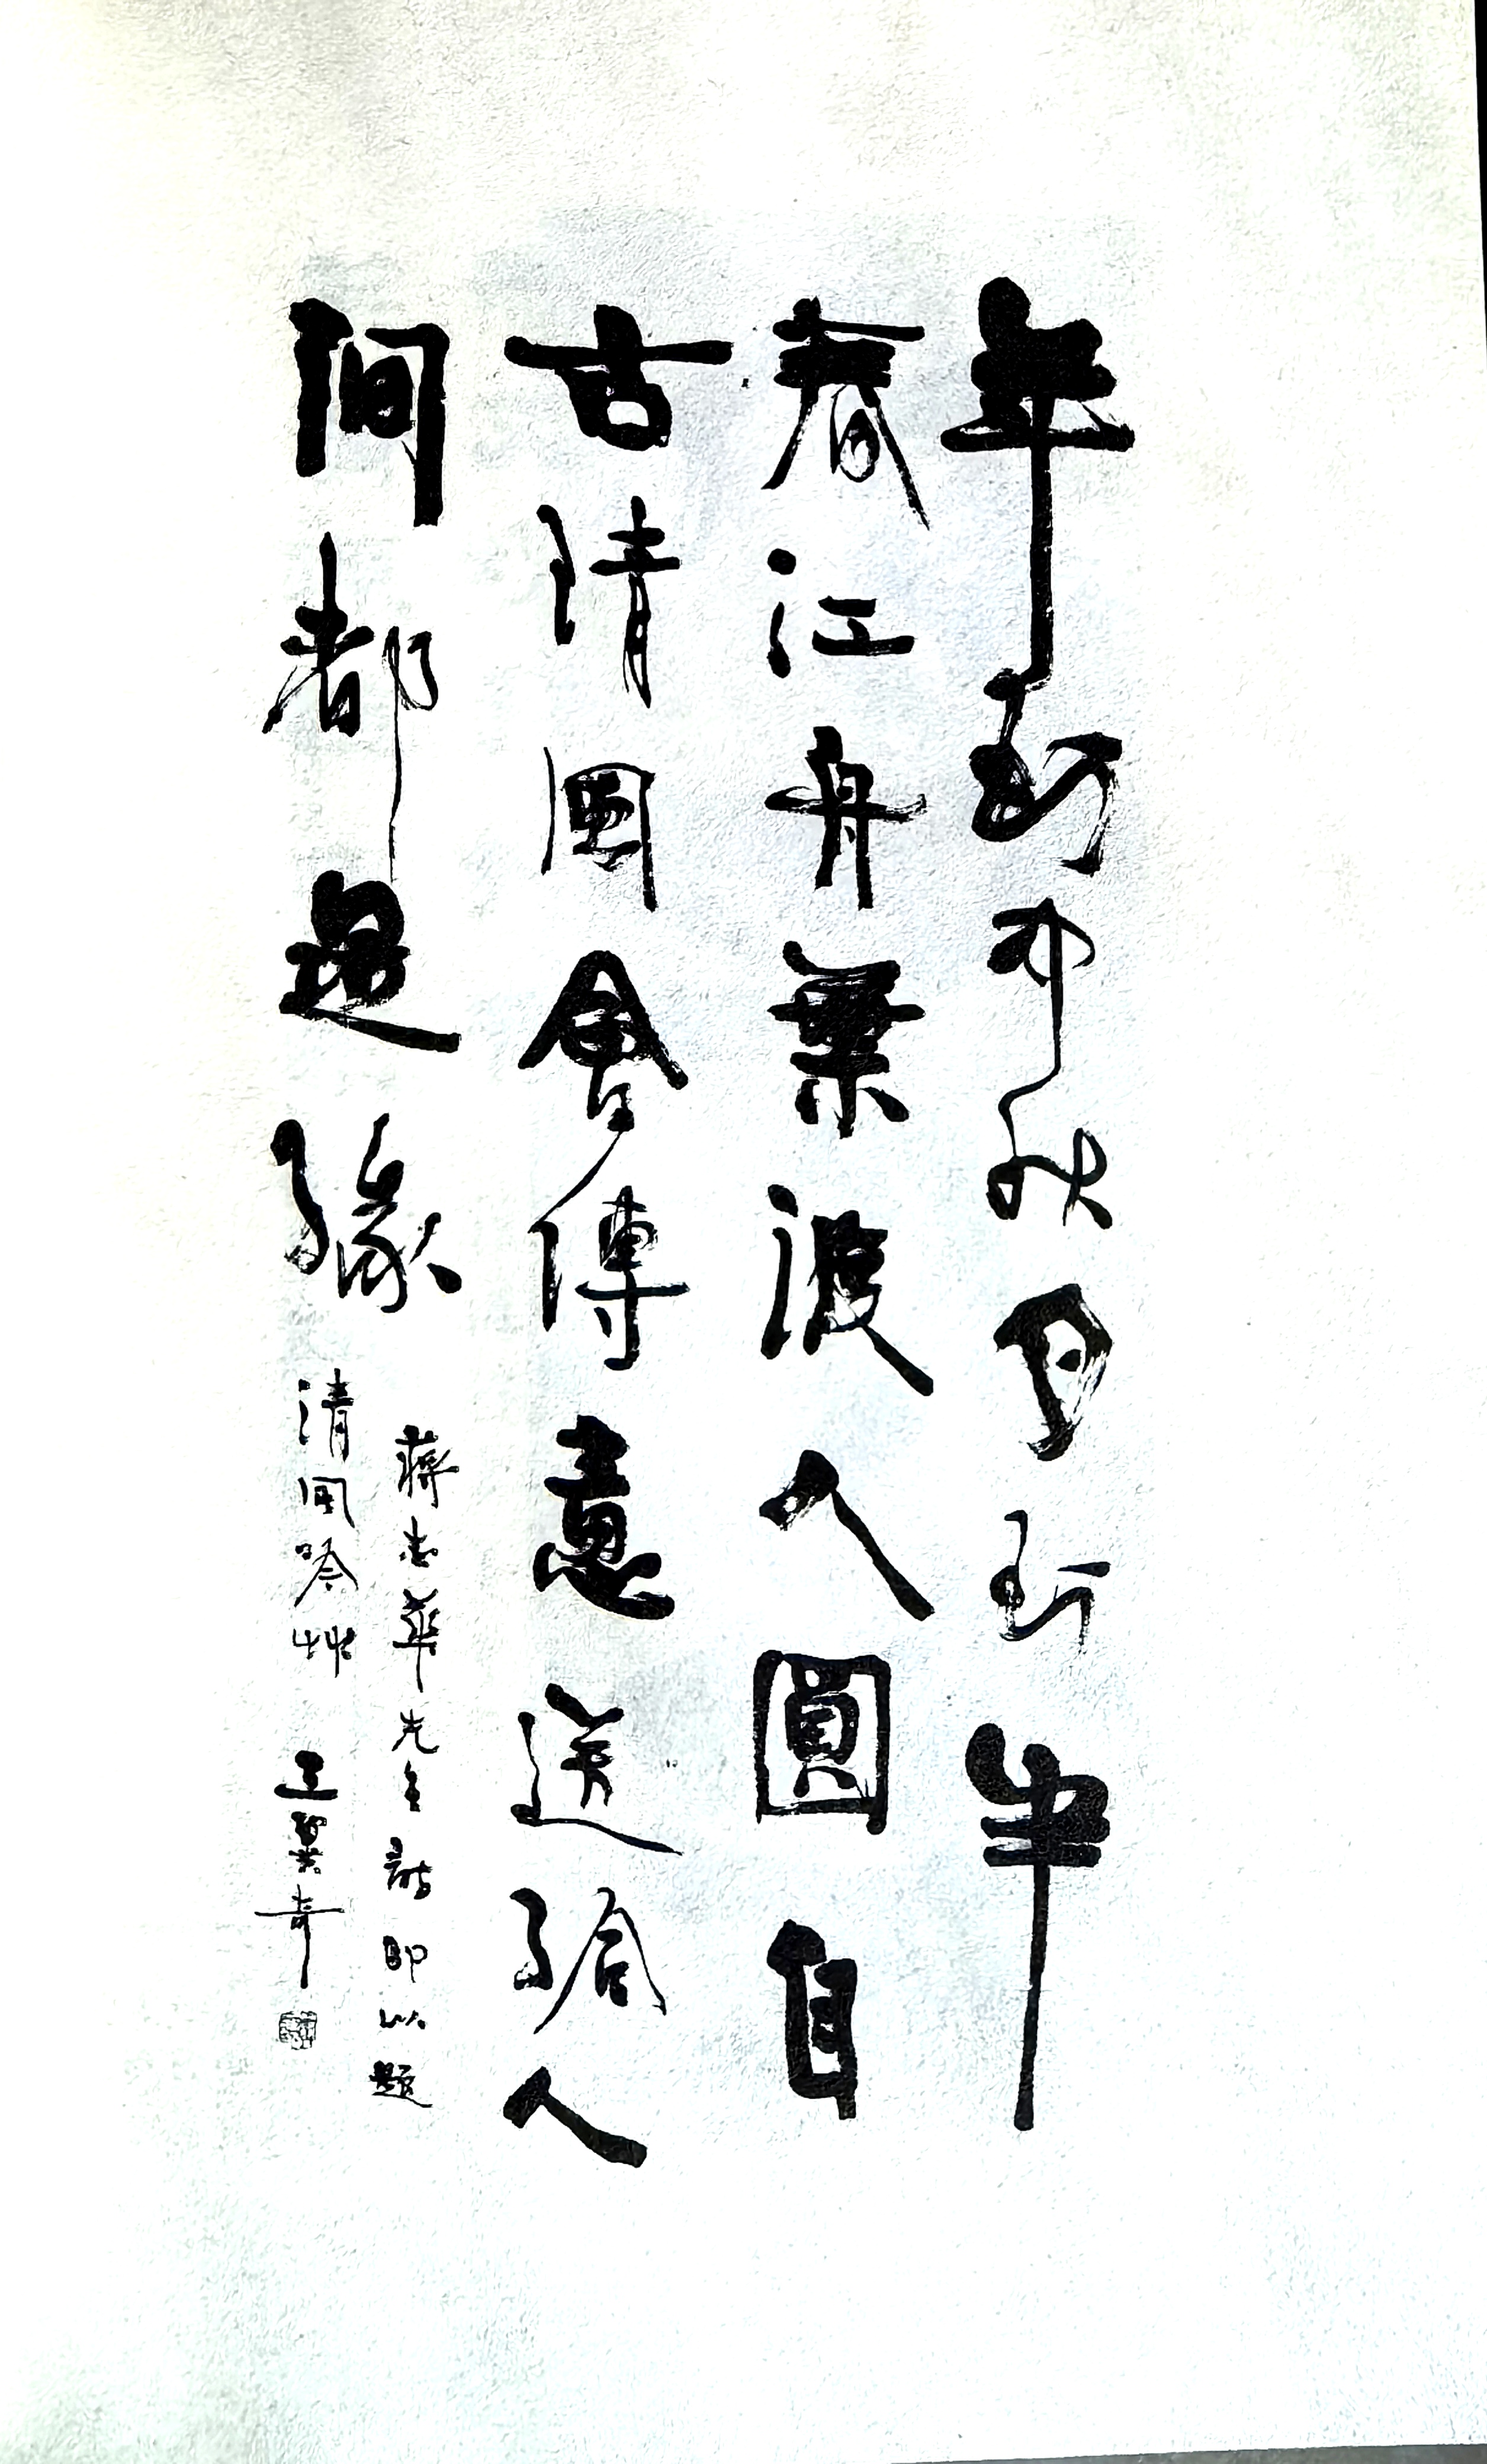 年到中秋月到半
春江舟葉渡人圓自
古清風會傳意送給人
間都是緣
蔣志華先生詩即以題
清風吟艸 王翼奇